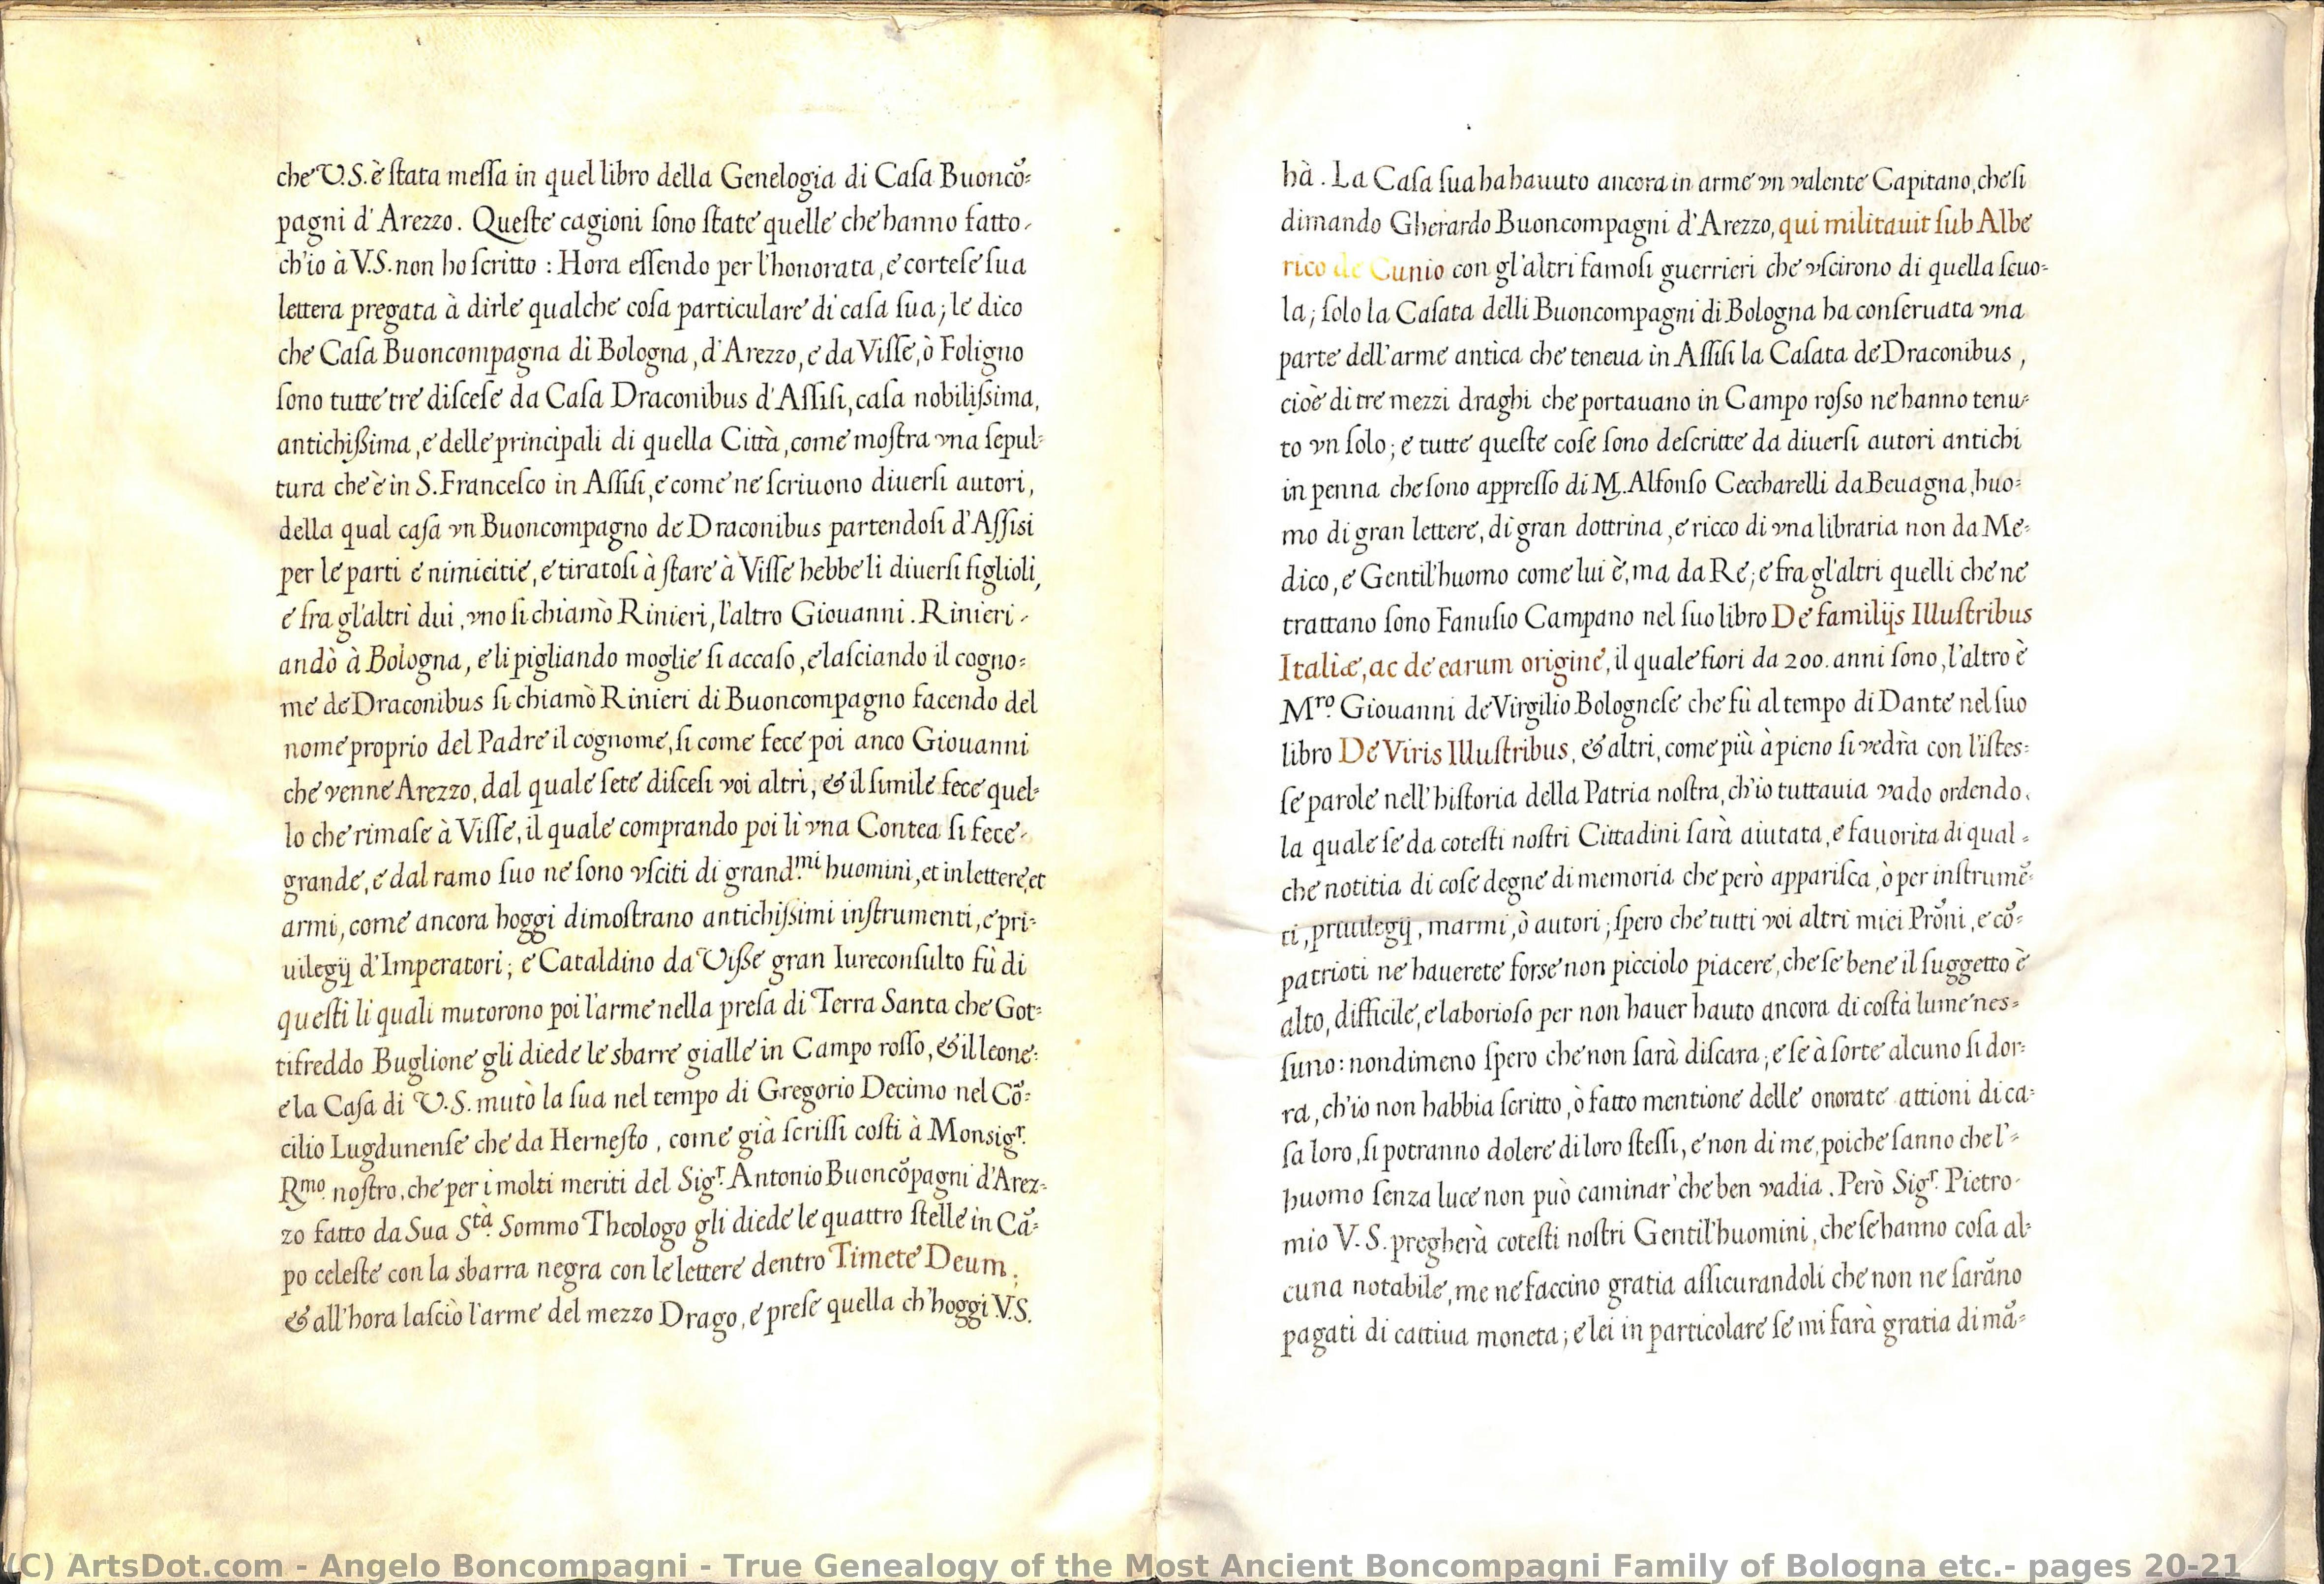 che V.S. è ſtata meſſa in quel libro della Genelogia di Caſa Buoncõ=
pagni d'Arezzo. Queſte cagioni ſono ſtate quelle che hanno fatto
ch'io à V.S. non ho ſcritto : Hora eſſendo per l'honorata, e corteſe ſua
lettera pregata à dirle qualche coſa particulare di caſa ſua; le dico
che Caſa Buoncompagna di Bologna, d'Arezzo, e da Viſſe, ò Foligno
ſono tutte tre diſceſe da Caſa Draconibus d'Aſſiſi, caſa nobiliſsima,
antichißima, e delle principali di quella Città, come moſtra vna ſepul=
tura che è in S. Franceſco in Aſſiſi, e come ne ſcriuono diuerſi autori,
della qual caſa vn Buoncompagno de Draconibus partendoſi d'Aſſisi
per le parti e nimicitie, e tiratoſi à ſtare à Viſſe hebbe li diuerſi figlioli,
e fra gl'altri dui, vno ſi chiamò Rinieri, l'altro Giouanni. Rinieri
andò à Bologna, e li pigliando moglie ſi accaſo, e laſciando il cogno=
me de Draconibus ſi chiamò Rinieri di Buoncompagno facendo del
nome proprio del Padre il cognome, ſi come fece poi anco Giouanni
che venne Arezzo, dal quale ſete diſceſi voi altri, & il ſimile fece quel=
lo che rimaſe à Viſſe, il quale comprando poi lì vna Contea ſi fece
grande, e dal ramo ſuo ne ſono vſciti di grand.mi huomini, et in lettere, et
armi, come ancora hoggi dimoſtrano antichiſsimi inſtrumenti, e pri=
uilegij d'Imperatori; e Cataldino da Viße gran Iureconſulto fù di
queſti li quali mutorono poi l'arme nella preſa di Terra Santa che Got=
tifreddo Buglione gli diede le sbarre gialle in Campo roſſo, & il leone:
e la Caſa di V.S. mutò la ſua nel tempo di Gregorio Decimo nel Cõ=
cilio Lugdunenſe che da Herneſto, come già ſcriſſi coſti à Monsigr.
Rmo. noſtro, che per i molti meriti del Sigr. Antonio Buoncõpagni d'Arez=
zo fatto da Sua Stà. Sommo Theologo gli diede le quattro ſtelle in Cã=
po celeſte con la sbarra negra con le lettere dentro Timete Deum;
& all'hora laſciò l'arme del mezzo Drago, e preſe quella ch'hoggi V.S.
hà. La Caſa ſua ha hauuto ancora in arme vn valente Capitano, che ſi
dimando Gherardo Buoncompagni d'Arezzo, qui militauit ſub Albe
rico de Cunio con gl'altri famoſi guerrieri che vſcirono di quella ſcuo=
la; ſolo la Caſata delli Buoncompagni di Bologna ha conſeruata vna
parte dell'arme antica che teneua in Aſſiſi la Caſata de Draconibus,
cioè di tre mezzi draghi che portauano in Campo roſso ne hanno tenu=
to vn ſolo; e tutte queſte coſe ſono deſcritte da diuerſi autori antichi
in penna che ſono appreſſo di M. Alfonſo Ceccharelli da Beuagna, huo=
mo di gran lettere, di gran dottrina, e ricco di vna libraria non da Me=
dico, e Gentil'huomo come lui è, ma da Re; e fra gl'altri quelli che ne
trattano ſono Fanuſio Campano nel ſuo libro De familijs Illuſtribus
Italiæ, ac de earum origine, il quale fiori da 200. anni ſono, l'altro è
Mro. Giouanni de Virgilio Bologneſe che fù al tempo di Dante nel ſuo
libro De Viris Illuſtribus, & altri, come più à pieno ſi vedrà con l'iſtes=
ſe parole nell'hiſtoria della Patria noſtra, ch'io tuttauia vado ordendo.
la quale ſe da coteſti noſtri Cittadini ſarà aiutata, e fauorita di qual=
che notitia di coſe degne di memoria che però appariſca, ò per inſtrumẽ=
ti, priuilegij, marmi, ò autori; ſpero che tutti voi altri miei Prõni, e cõ=
patrioti ne hauerete forse non picciolo piacere, che ſe bene il ſuggetto è
alto, difficile, e laborioſo per non hauer hauto ancora di coſtà lume nes=
ſuno: nondimeno ſpero che non ſarà diſcara; e ſe à ſorte alcuno ſi dor=
ra, ch'io non habbia ſcritto, ò fatto mentione delle onorate attioni di ca=
ſa loro, ſi potranno dolere di loro ſteſſi, e non di me, poiche ſanno che l'=
huomo ſenza luce non può caminar' che ben vadia. Però Sigr. Pietro
mio V.S. pregherà coteſti noſtri Gentil'huomini, che ſe hanno coſa al=
cuna notabile, me ne faccino gratia aſſicurandoli che non ne ſarãno
pagati di cattiua moneta; e lei in particolare ſe mi farà gratia di mã=
(C) ArtsDot.com - Angelo Boncompagni - True Genealogy of the Most Ancient Boncompagni Family of Bologna etc.- pages 20-21